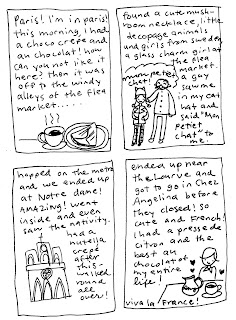 Paris! I'm in paris!
this morning, I had
a choco crepe and
an chocolat! how
can you not like it
here? then it was
off to the windy
alleys of the flea
market.....
found a cute mush-
room necklace, little
decopage animals
and girls from sweden,
a glass charm girl at
the flea
market.
a guy
saw me
in my cat
hat and
said "Mon
Petiet
chat" to
me.
man petiet
chat!
hopped on the metro
and we ended up
at Notre dame!
AMAZING! went
inside and even
saw the nativity.
had a
nutella
crepe
after
this-
walked
round
all
over!
ended up near
the Lourve and
got to go in Chez
Angelina before
they closed! so
cute and French!
I had a presse de
citron and the
best an
chocolat of
my entire
life!
viva la France!